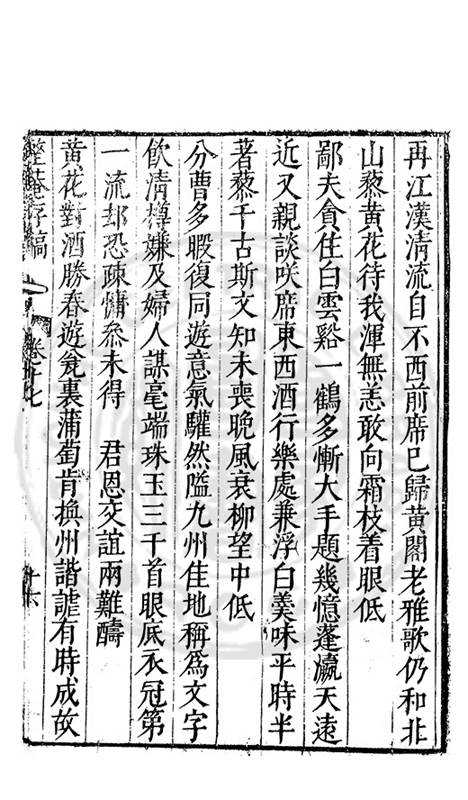 再江漢清流自不西前席已歸黃閣老雅歌仍和非
山藜黃花待我渾無恙敢向霜枝着眼低
鄙夫貪住白雲谿一鶴多慚大手題幾憶蓬瀛天遠
近又親談咲席東西酒行樂處兼浮白羹味平時半
著藜千古斯文知未喪晚風衰柳望中低
分曹多暇復同遊意氣驩然隘九州佳地稱爲文字
飲清樽嫌及婦人謀毫端珠玉三千首眼底衣冠第
一流却恐疎慵叅未得　君恩交誼兩難醻
黃花對酒勝春遊瓮裏蒲萄肯換州諧謔有時成故
存稿　卷十七　十六